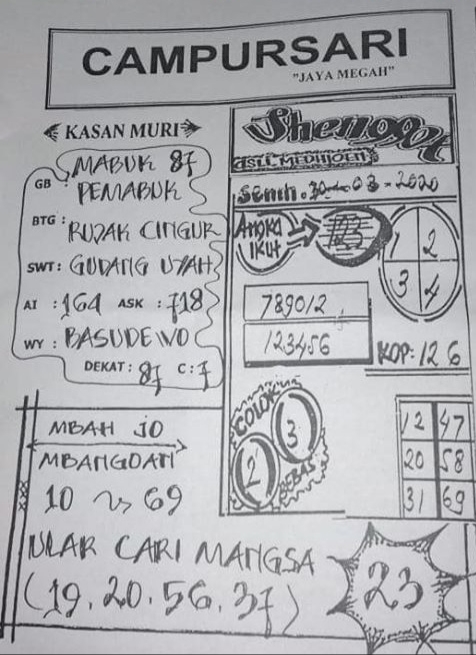 CAMPURSARI
"JAYA MEGAH"
KASAN MURI
GB : MABUK 87
PEMABUK
BTG : RUJAK CINGUR
SWT : GUDANG UYAH
AI : 164 ASK : 718
WY : BASUDEWO
DEKAT : 87 C : 7
Shengot
ASLI MEDHIOEN
Senin . 30 - 03 - 2020
ANGKA
IKUT
123
1 2
3 4
789012
123456
KOP : 12 6
COLOK
2 3
BEBAS
12 47
20 58
31 69
MBAH JO
MBANGOAN
10 69
ULAR CARI MANGSA
(19. 20. 56. 37)
23